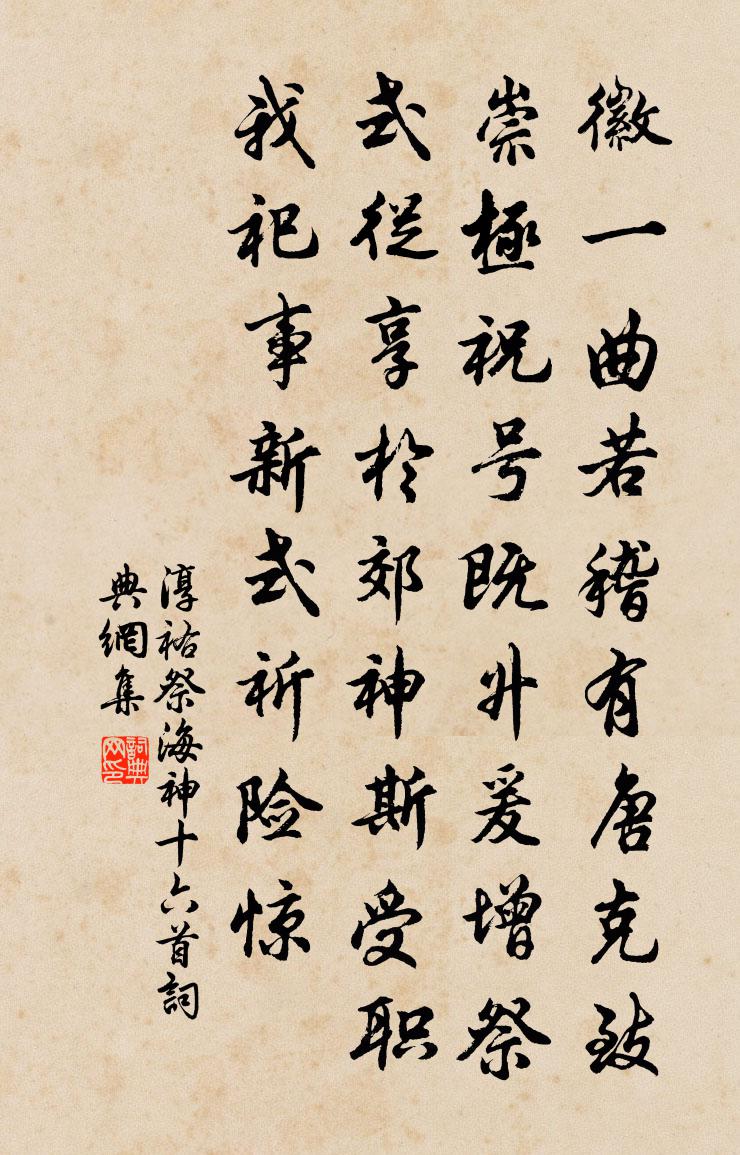 徽一曲若稽有唐克致
崇極祝号既升爰增祭
式從享於郊神斯受职
我祀事新式祈险惊
淳祐祭海神十六首詞
典網集
詞典網印